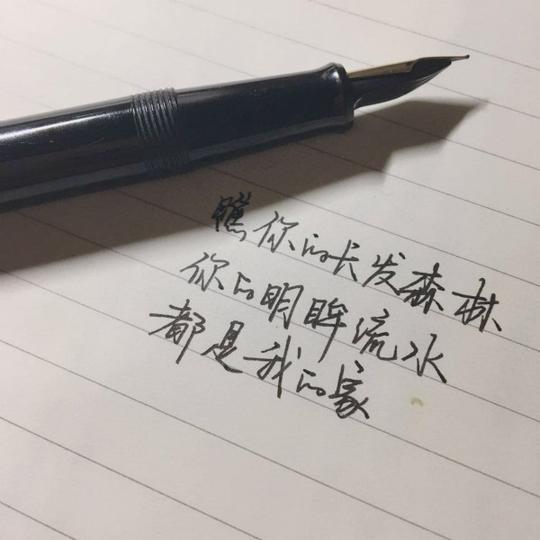 瞧你的长发森林
你的明眸流水
都是我的家